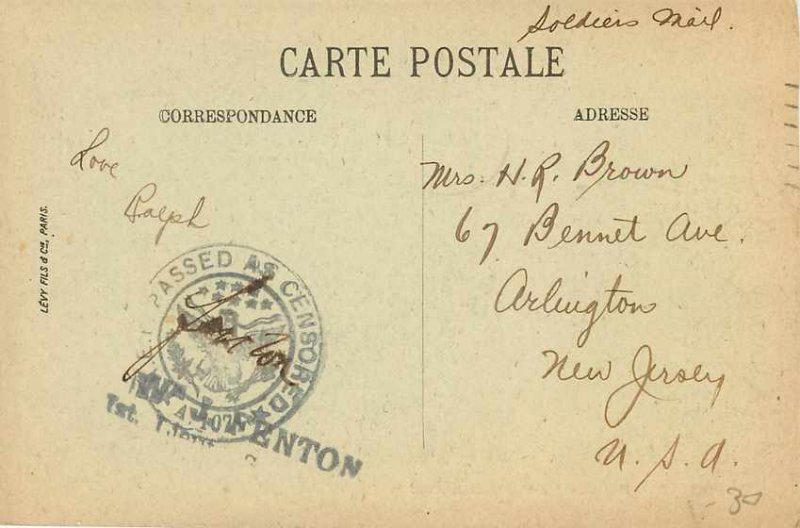 Soldiers Mail.
CARTE POSTALE
CORRESPONDANCE
ADRESSE
Love
Ralph
LÉVY FILS & Cie, PARIS.
PASSED AS CENSORED
FENTON
1st. Lieut
Mrs. H. R. Brown
67 Bennet Ave.
Arlington
New Jersey
U. S. A.